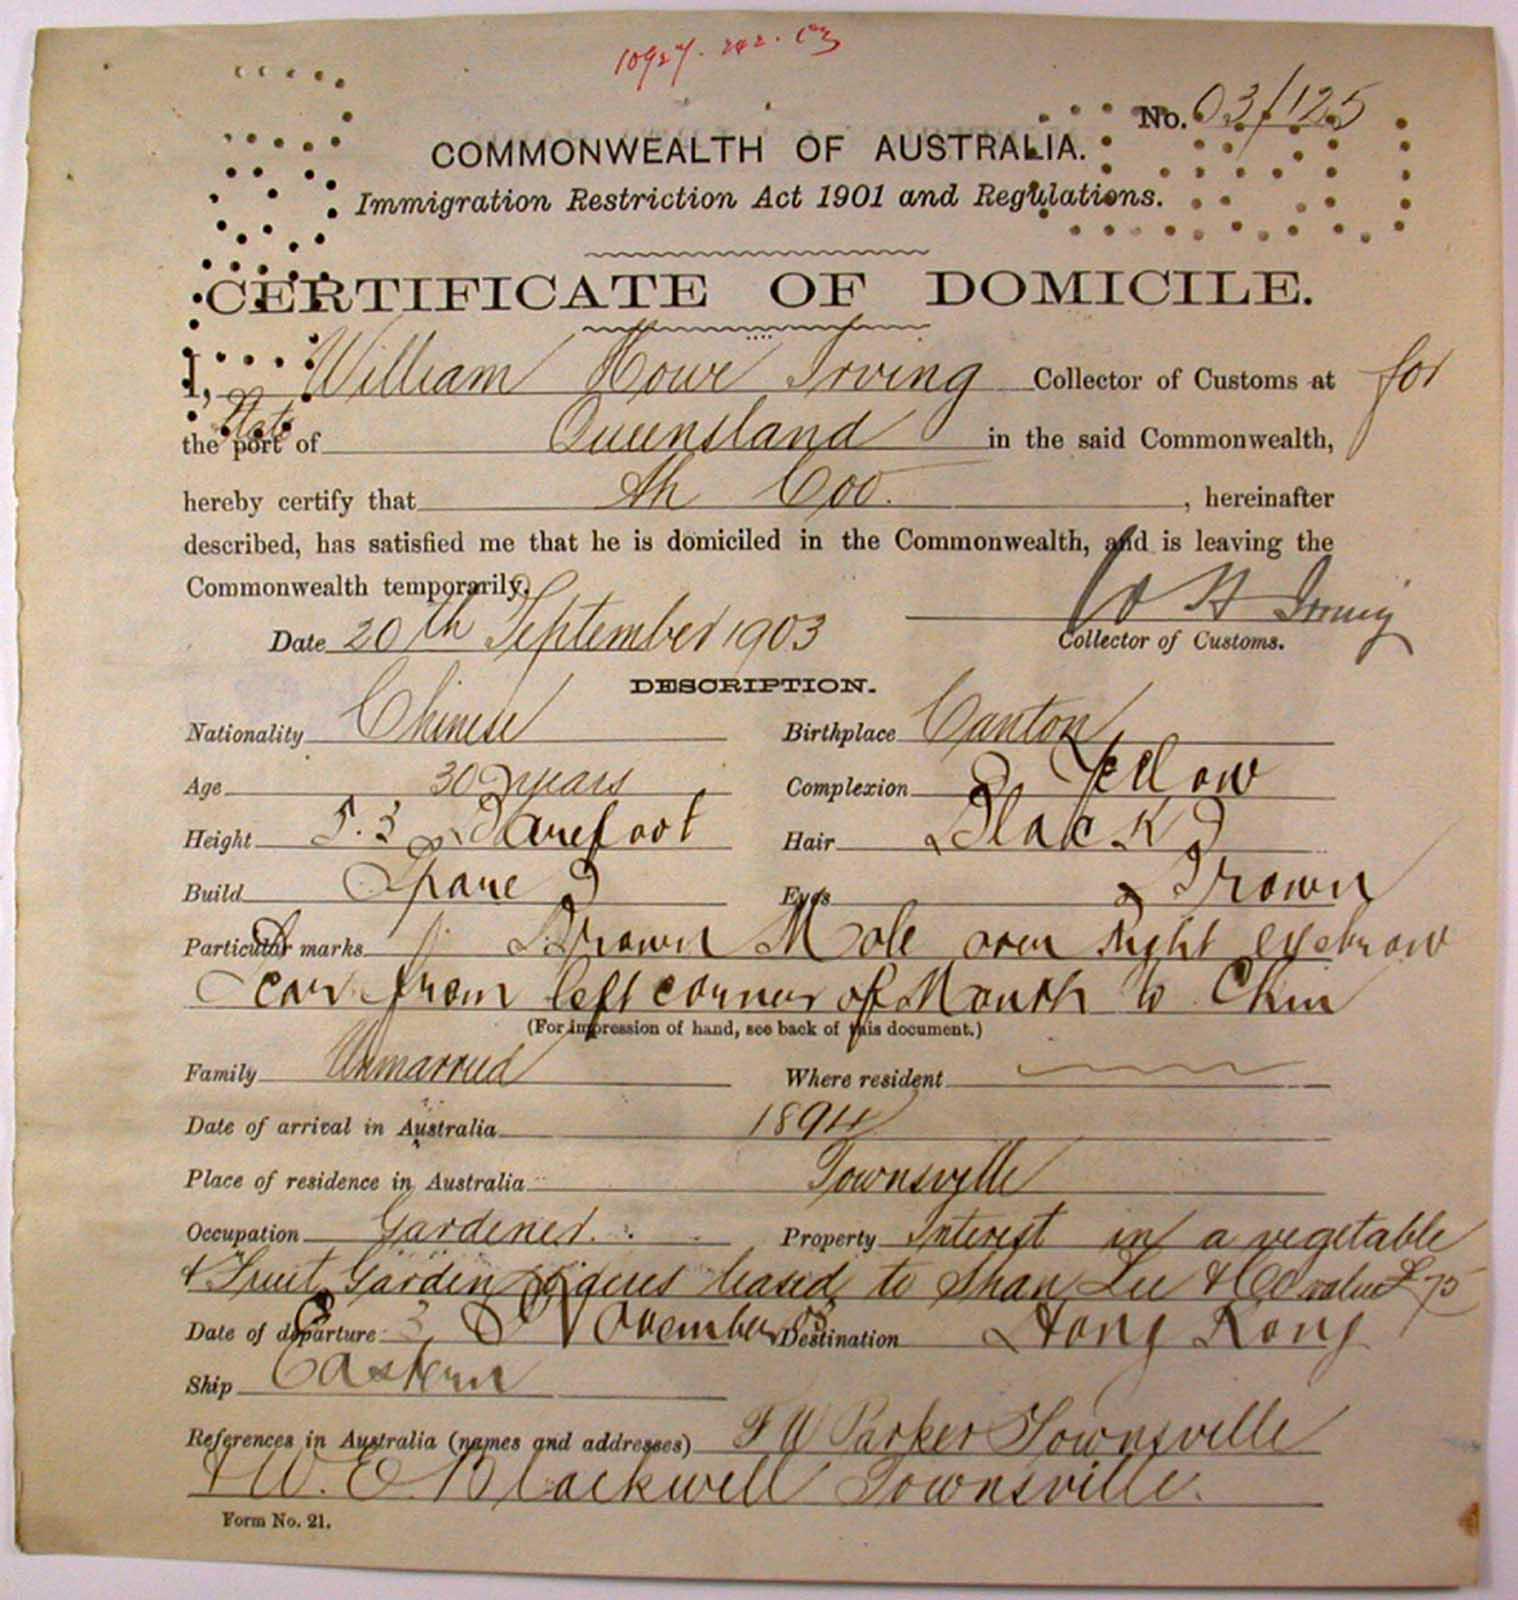 No. 03/125
COMMONWEALTH OF AUSTRALIA.
Immigration Restriction Act 1901 and Regulations.
CERTIFICATE OF DOMICILE.
I, William Howe Irving Collector of Customs at for
the port of State Queensland in the said Commonwealth,
hereby certify that Ah Coo. , hereinafter
described, has satisfied me that he is domiciled in the Commonwealth, and is leaving the
Commonwealth temporarily.
W H Irving
Date 20th September 1903 Collector of Customs.
DESCRIPTION.
Nationality Chinese Birthplace Canton
Age 30 years Complexion Yellow
Height 5.3 Barefoot Hair Black
Build Spare Eyes Brown
Particular marks Brown Mole over right eyebrow
Scar from left corner of Mouth to Chin
(For impression of hand, see back of this document.)
Family Unmarried Where resident
Date of arrival in Australia 1894
Place of residence in Australia Townsville
Occupation Gardener. Property Interest in a vegetable
& Fruit Garden leased to Shan Lee & Co value £75
Date of departure 3 November 03 Destination Hong Kong
Ship Eastern
References in Australia (names and addresses) F W Parker Townsville
& W. E Blackwell Townsville.
Form No. 21.